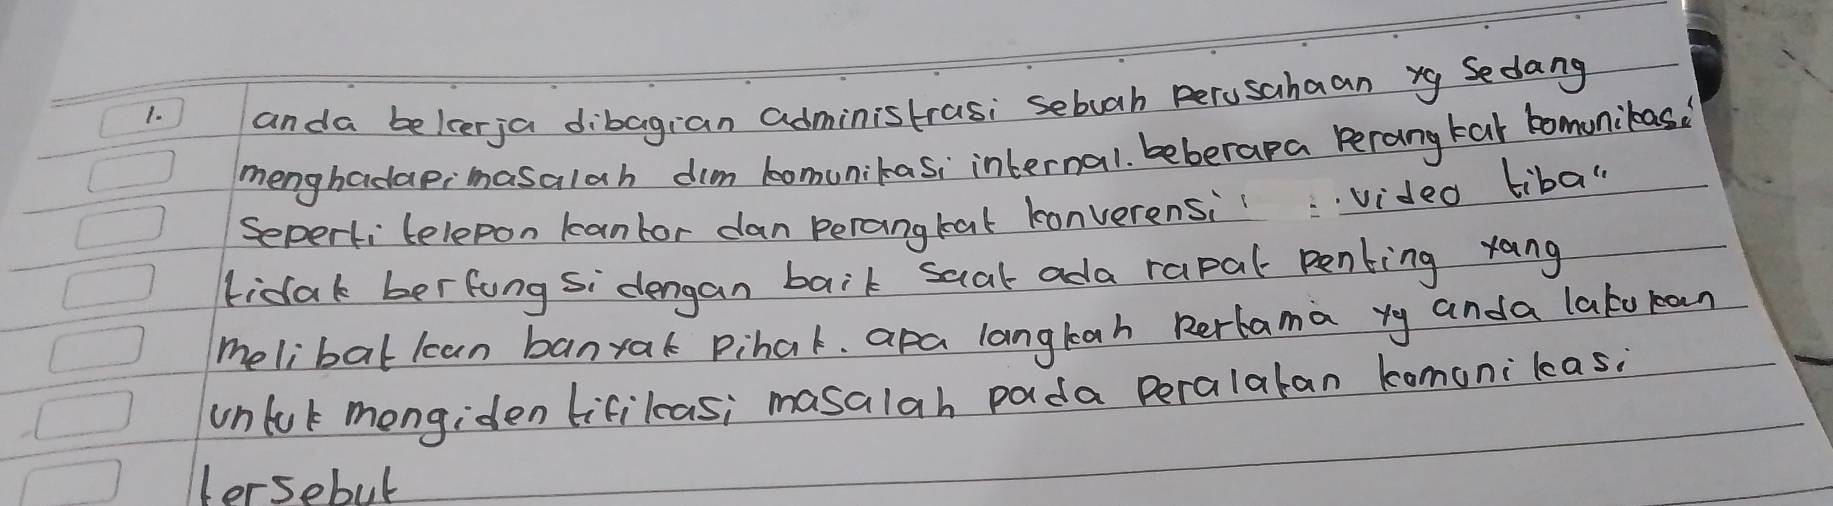 1. anda bekerja dibagian administrasi sebuah perusahaan yg sedang
menghadapi masalah dlm komunikasi internal. beberapa perangkat komunikasi
seperti telepon kantor dan perangkat konverensi video tiba"
tidak berfungsi dengan baik saat ada rapat penting yang
melibatkan banyak pihak. apa langkah pertama yg anda lakukan
untuk mengidentifikasi masalah pada peralatan komunikasi
tersebut